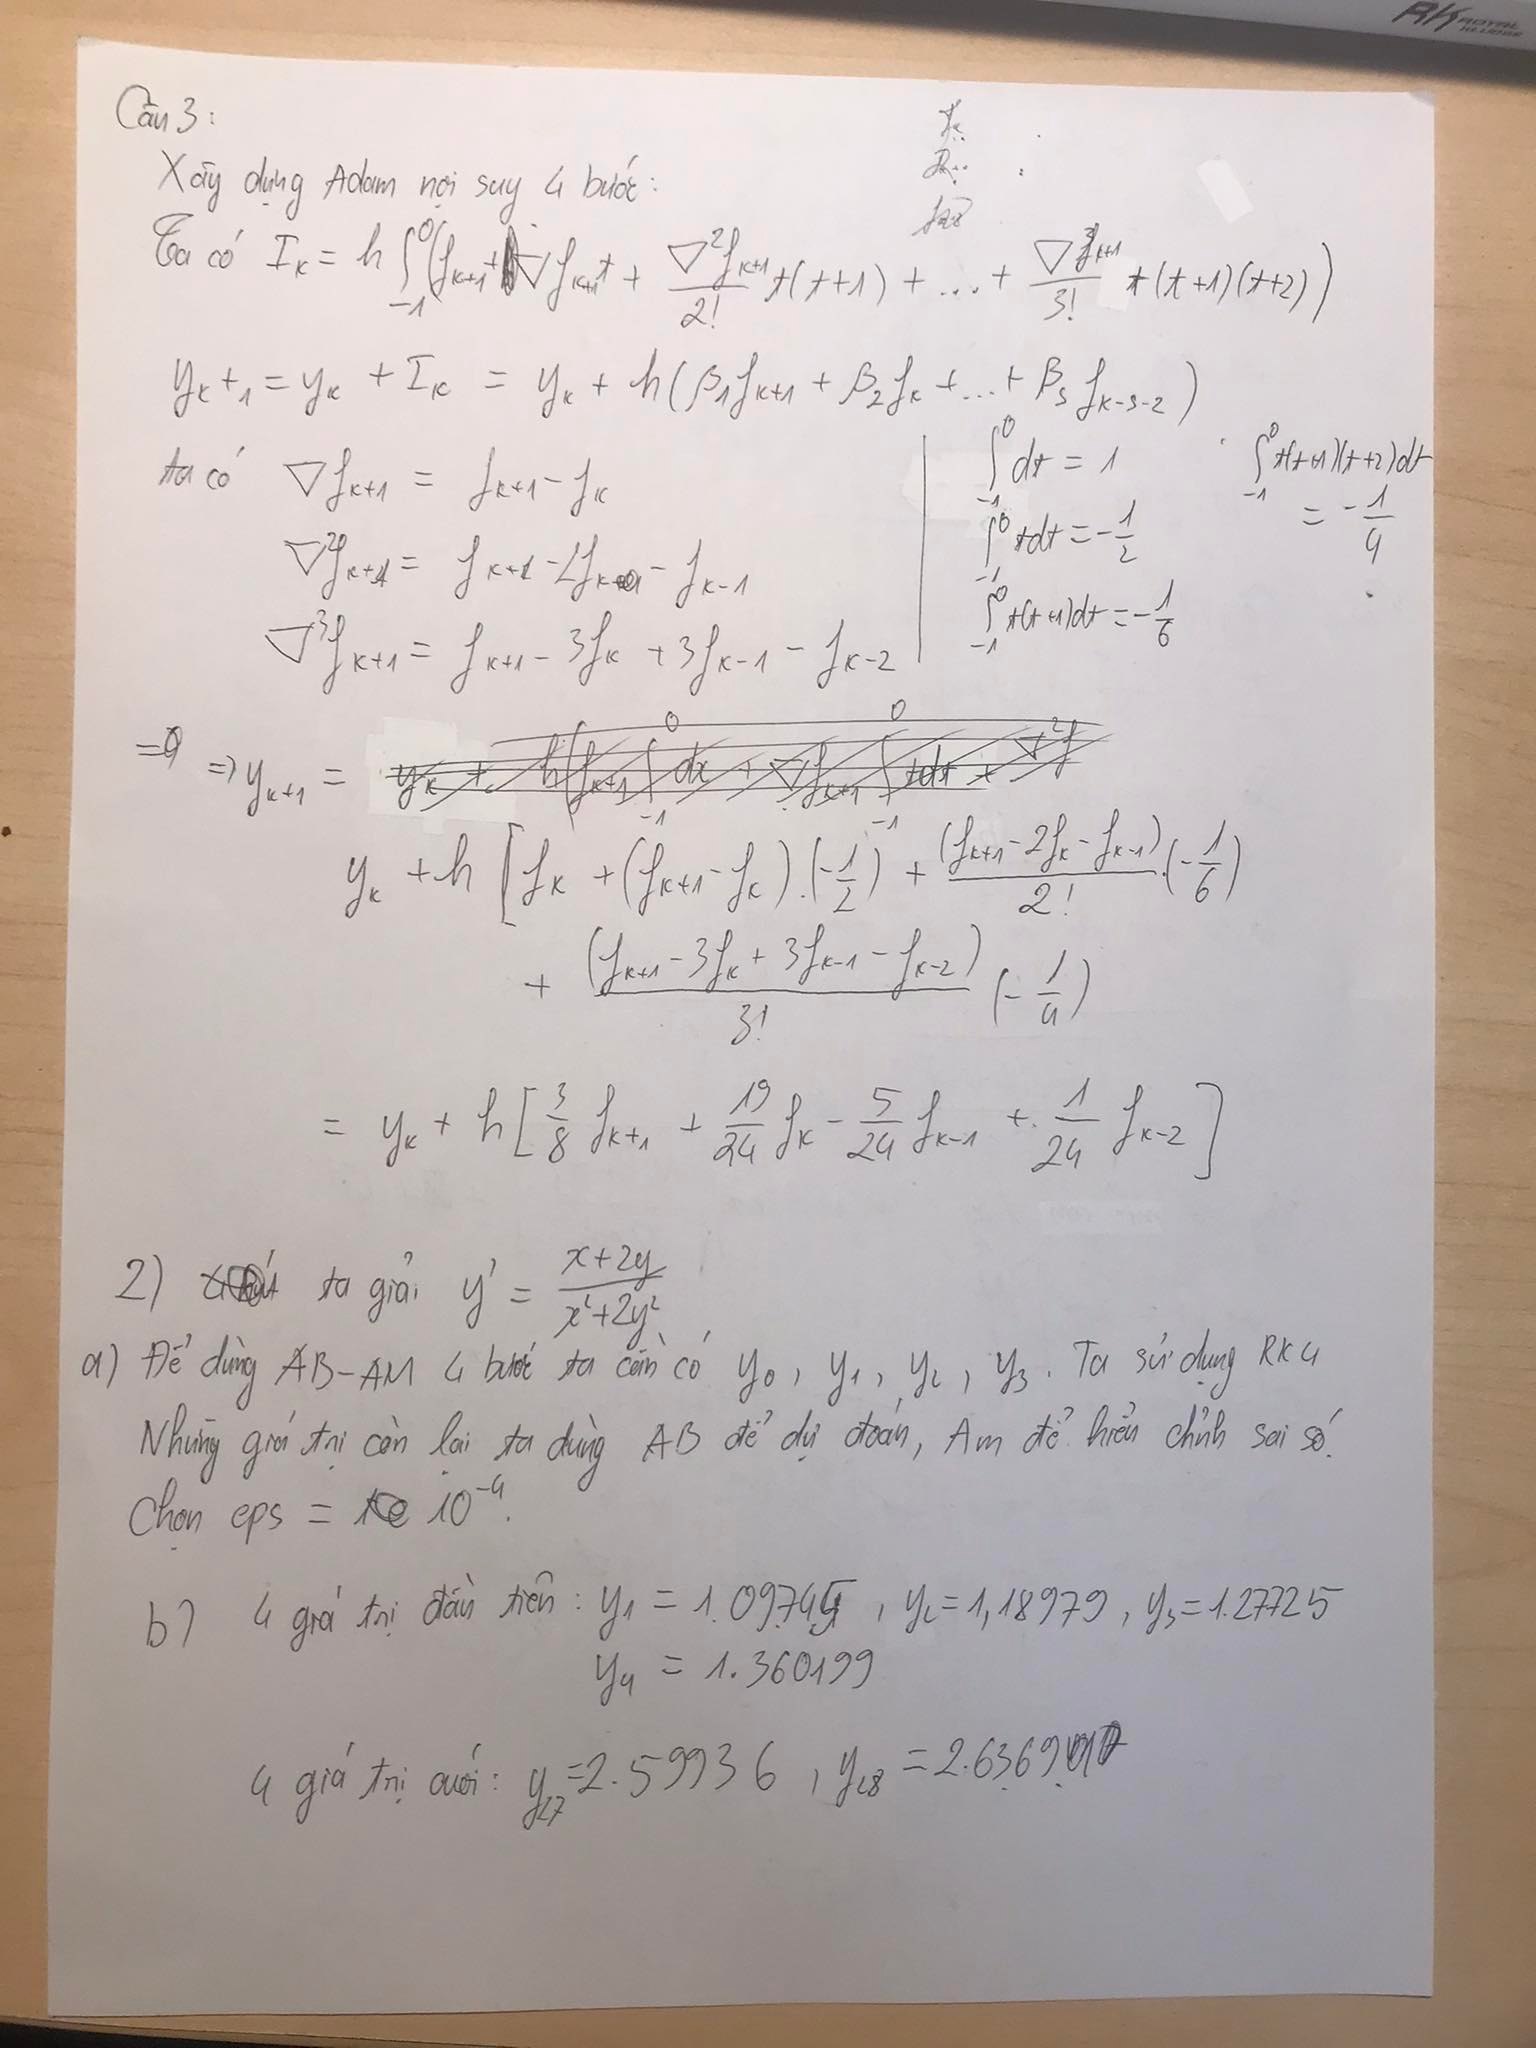 RK ROYAL KLUDGE
Câu 3:
Xây dựng Adam nội suy 4 bước:
Ta có I_k = h ∫_{-1}^{0} (f_{k+1} + ∇f_{k+1} t + ∇²f_{k+1}/2! t(t+1) + ... + ∇³f_{k+1}/3! t(t+1)(t+2))
y_{k+1} = y_k + I_k = y_k + h(β_1 f_{k+1} + β_2 f_k + ... + β_s f_{k-s-2})
ta có ∇f_{k+1} = f_{k+1} - f_k
∇²f_{k+1} = f_{k+1} - 2f_k - f_{k-1}
∇³f_{k+1} = f_{k+1} - 3f_k + 3f_{k-1} - f_{k-2}
∫_{-1}^{0} dt = 1
∫_{-1}^{0} t dt = -1/2
∫_{-1}^{0} t(t+1)dt = -1/6
∫_{-1}^{0} t(t+1)(t+2)dt
= -1/4
=> y_{k+1} =
y_k + h [f_k + (f_{k+1} - f_k).(-1/2) + (f_{k+1} - 2f_k - f_{k-1})/2! .(-1/6)
+ (f_{k+1} - 3f_k + 3f_{k-1} - f_{k-2})/3! (-1/4)
= y_k + h [3/8 f_{k+1} + 19/24 f_k - 5/24 f_{k-1} + 1/24 f_{k-2}]
2) ta giải y' = (x+2y)/(x²+2y²)
a) Để dùng AB-AM 4 bước ta cần có y_0, y_1, y_2, y_3. Ta sử dụng RK4
Những giá trị còn lại ta dùng AB để dự đoán, AM để hiển chỉnh sai số.
Chọn eps = 10^{-4}.
b) 4 giá trị đầu tiên: y_1 = 1.09745, y_2 = 1,18979, y_3 = 1.27725
y_4 = 1.360199
4 giá trị cuối: y_27 = 2.59936, y_28 = 2.6369